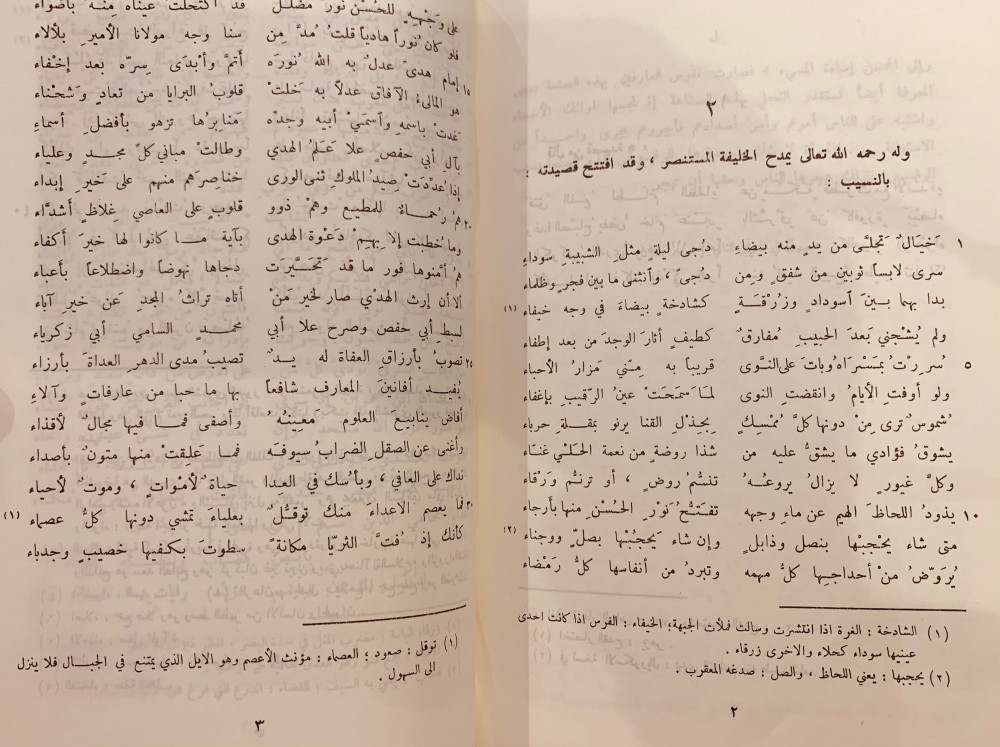 ٢
وله رحمه الله تعالى يمدح الخليفة المستنصر ، وقد افتتح قصيدته
بالنسيب :
١ خَيَالٌ تَجَلَّى من يدٍ منه بيضاءِ دُجى ليلةٍ مثل الشبيبةِ سوداءِ
سرى لابساً ثوبين من شفقٍ ومن دُجىً ، وانثنى ما بين فجرٍ وظلماء
بدا بهما بينَ اسودادٍ وزُرْقةٍ كشادخةٍ بيضاءَ في وجه خيفاء (١)
ولم يُشْجِني بَعدَ الحبيبِ مُفارقٌ كطيفٍ أثارَ الوجدَ من بعد إطفاء
٥ سُرِرْتُ بمَسْرَاهُ وباتَ على النَّوى قريباً به مِنّي مَزارُ الأحباء
ولو أوفت الأيامُ وانقضتِ النوى لمَا سَمَحَتْ عينُ الرَّقيبِ بإغفاء
شُموسٌ تَرى مِنْ دونها كلَّ مُمْسِكٍ بِجِذْلِ القنا يرنو بمقلةِ حرباء
يشوقُ فؤادي ما يشقُّ عليه من شذا روضةٍ من نعمة الحَلْي غنّاء
وكلَّ غيورٍ لا يزالُ يروعُهُ تنسُّمُ روضٍ ، أو ترنُّمُ وَرْقاء
١٠ يذودُ اللحاظَ الهيم عن ماءِ وجهه تفتّحُ نَوْرِ الحُسْنِ منها بأرجاء
متى شاء يحْجبْها بنصلٍ وذابلٍ وإن شاء يَحجُبْها بصلٍّ ووجناء (٢)
يُرَوّضُ مِنْ أحداجها كلُّ مهمه وتبردُ من أنفاسها كلُّ رَمْضاء
(١) الشادخة : الغرة اذا انتشرت وسالت فملأت الجبهة؛ الخيفاء : الفرس اذا كانت احدى
عينيها سوداء كحلاء والاخرى زرقاء .
(٢) يحجبها : يعني اللحاظ ، والصل : صدغه المعقرب .
٢
على وَجْهِهِ للحُسْنِ نورٌ مضلّلٌ قد اكتحلت عيناه منهُ بأضواء
فلو كان نُوراً هادياً قلتُ مُدَّ مِن سنا وجه مولانا الأميرِ بلألاء
١٥ إمام هدىً عدلٌ به اللهُ نُورَه أتمَّ وأبْدَى سِرّه بعد إخْفاء
هو المالئُ الآفاق عدلاً به خَلتْ قلوبُ البرايا من تعادٍ وَشحْناء
غدتْ باسمه واسمَيْ أبيه وجدّه مَنابِرُها تزهو بأفضلِ أسماءِ
بآلِ أبي حفصٍ علا عَلَمُ الهدي وطالتْ مباني كلّ مجدٍ وعلياء
إذا عدّدَتْ صِيدُ الملوكِ ثنى الورى خناصرَهم منهم على خَيرِ إبداء
٢٠ هُم رُحَماءٌ للمطيع وهمْ ذوو قلوبٍ على العاصي غِلاظٍ أشدّاء
وما خُطبت إلا بِهِمْ دَعْوةُ الهدى بآية ما كانوا لها خيرَ أكفاء
هُم أمّنوها فور ما قد تَحَيَّرَت دجاها نهوضاً واضطلاعاً بأعباء
ألا أن إرث الهدْي صار لخير مَنْ أتاه تراثُ المجدِ عن خيرِ آباء
لسبط أبي حفص وصرح علا أبي محمدٍ السامي أبي زكرياء
٢٥ نصوبُ بأرزاقِ العفاة له يدٌ تصيبُ مدى الدهر العداةَ بأرزاء
يُفيد أفانينَ المعارف شافعاً بها ما حبا من عارفاتٍ وآلاءِ
أفاض ينابيعَ العلومِ مَعِينُهُ وأضفى فما فيها مجالٌ لأقذاء
وأغنى عن الصقلِ الضرابُ سيوفَه فما عَلِقتْ منها متونٌ بأصداء
نداك على العافي ، وبأسك في العدا حياةٌ لأمواتٍ ، وموتٌ لأحياء
٣٠ فما يعصم الاعداءَ منك توقُّلٌ بعلياءَ تمشي دونها كلُّ عصماء (١)
كأنك إذ فُتَّ الثريّا مكانةً سطوتَ بكفيها خصيبٍ وجدباء
(١) توقل : صعود ؛ العصماء : مؤنث الأعصم وهو الايل الذي يمتنع في الجبال فلا ينزل
الى السهول .
٣